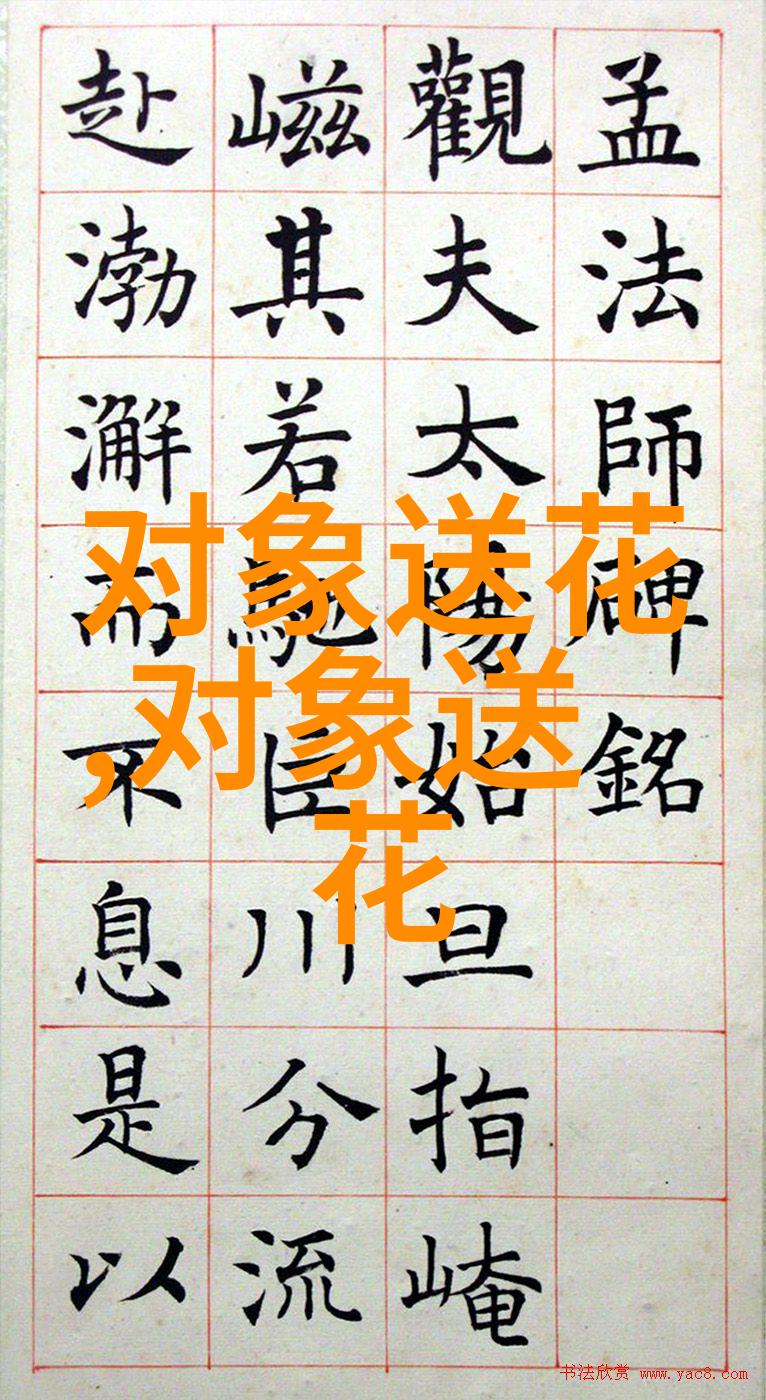 孟法師碑銘
觀夫太陽始旦指崦
嵫其若馳巨川分流
赴渤澥而不息是以
对象送花
,对象送
花
书法欣赏 www.yac8.com